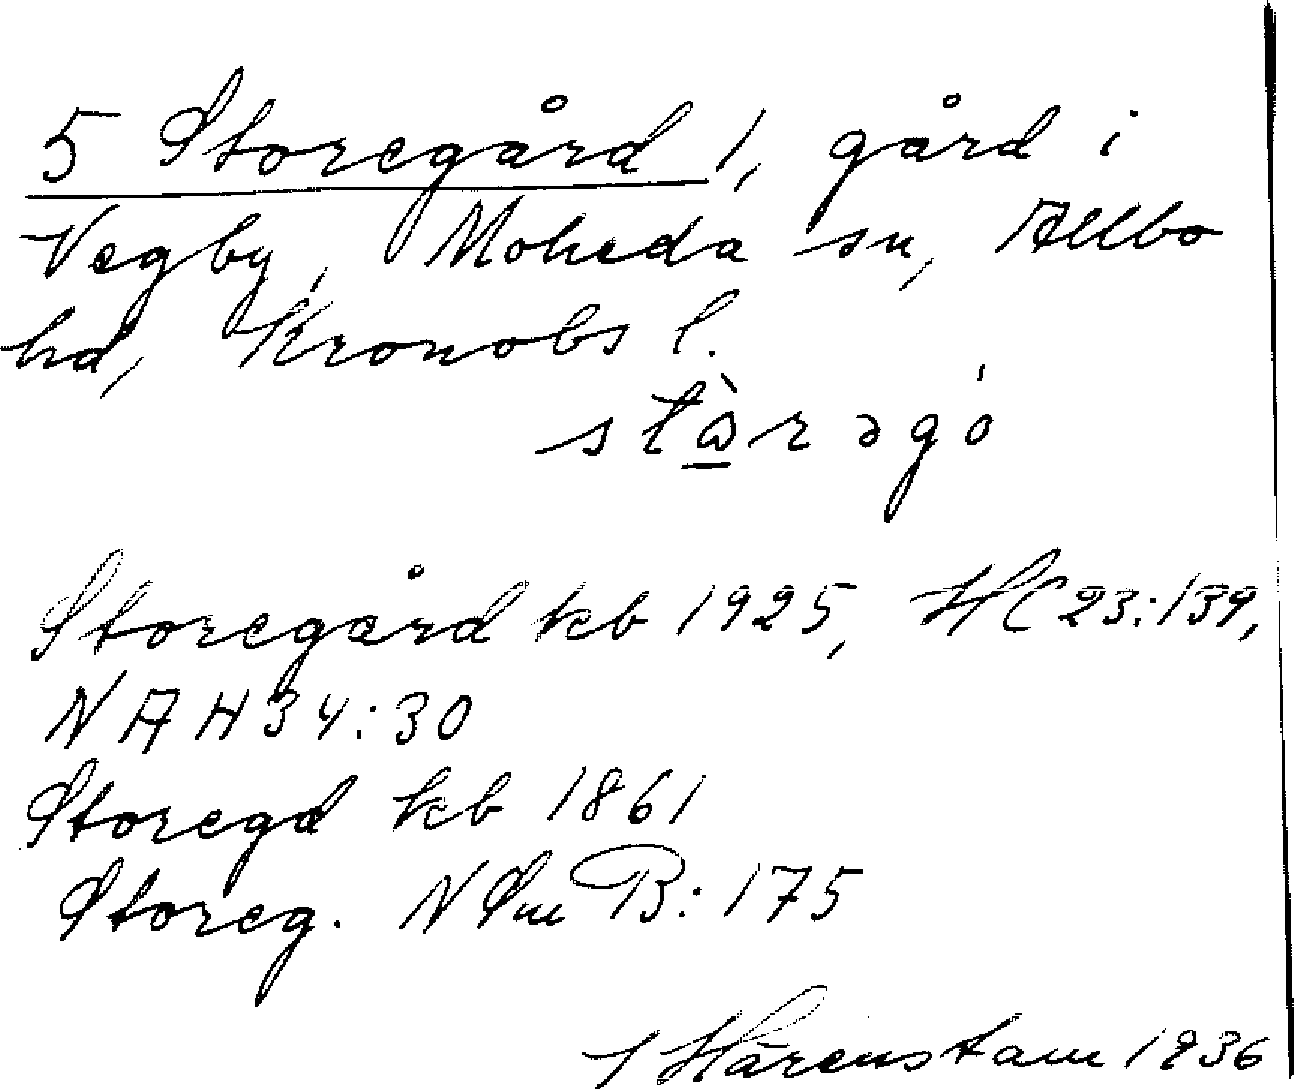 5 Storegård 1, gård i
Vegby, Moheda sn, Allbo
hd, Kronobs l.
stɷ̀rəgó
Storegård kb 1925, HC 23:139,
NAH 34:30
Storegd kb 1861
Storeg. N Sm B: 175
Hårenstam 1936